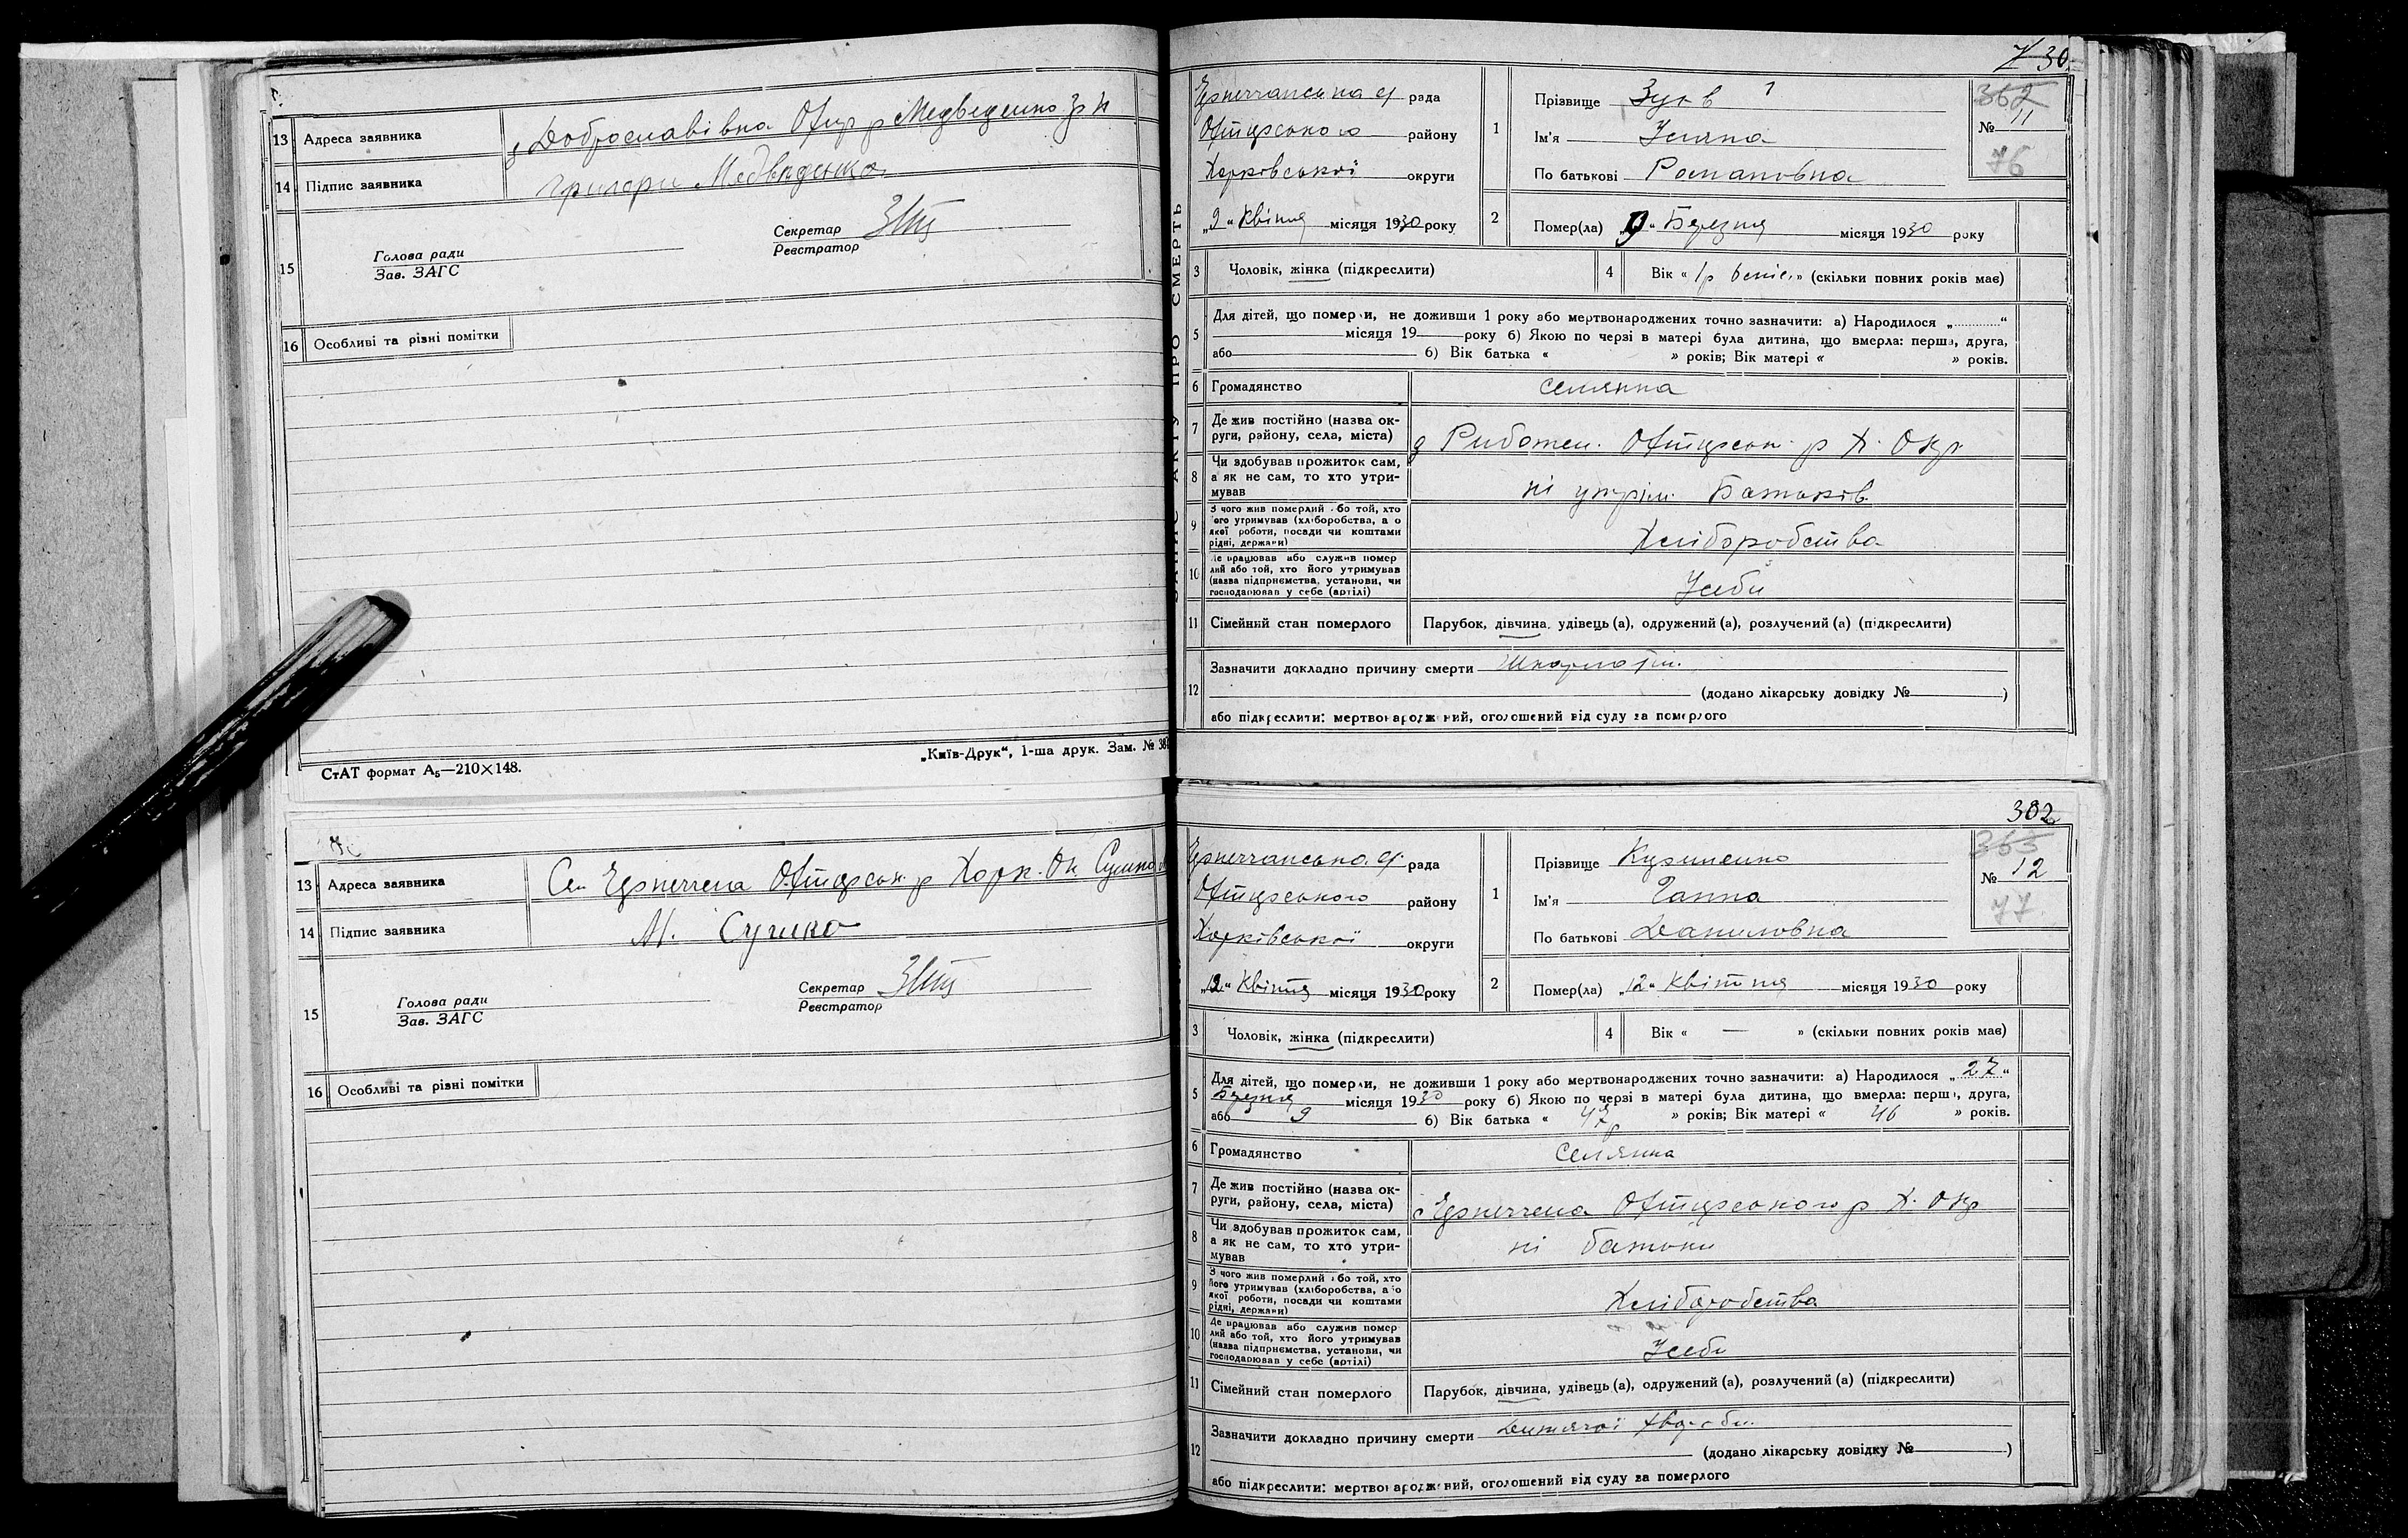 13 Адреса заявника д Доброславівка Охтир р Медведенко Гр Н
14 Підпис заявника Медведенко
15 Голова ради
Зав. ЗАГС
Секретар
Реєстратор
16 Особливі та різні помітки
„Київ-Друк“, 1-ша друк. Зам. № 38
СтАТ формат А₅—210×148.
13 Адреса заявника Сл Охтирськ. р Харк. Ок Сушко М
14 Підпис заявника М. Сушко
15 Голова ради
Зав. ЗАГС
Секретар
Реєстратор
16 Особливі та різні помітки
ЗАПИС АКТУ ПРО СМЕРТЬ
30
рада
Охтирського району
Харківської округи
„9“ Квітня місяця 1930 року
1 Прізвище Зуєв
Ім'я Уляна
По батькові Романовна
362
№ 11
76
2 Помер(ла) „9“ Березня місяця 1930 року
3 Чоловік, жінка (підкреслити)
4 Вік « 1р 6 міс. » (скільки повних років має)
5 Для дітей, що померли, не доживши 1 року або мертвонароджених точно зазначити: а) Народилося „.............“
місяця 19 року б) Якою по черзі в матері була дитина, що вмерла: перша, друга,
або б) Вік батька « » років; Вік матері « » років.
6 Громадянство селянка
7 Де жив постійно (назва округи, району, села, міста) д Охтирськ. р Х. Окр
8 Чи здобував прожиток сам, а як не сам, то хто утримував ні утрим. Батьків
9 З чого жив померлий або той, хто його утримував (хліборобства, а о якої роботи, посади чи коштами рідні, держави) Хліборобства
10 Де працював або служив помер лий або той, хто його утримував (назва підприємства, установи, чи господарював у себе (артілі) Усебе
11 Сімейний стан померлого Парубок, дівчина, удівець (а), одружений (а), розлучений (а) (підкреслити)
12 Зазначити докладно причину смерти Шкарлатин.
(додано лікарську довідку № )
або підкреслити: мертвонароджений, оголошений від суду за померлого
302
рада
Охтирського району
Харківської округи
„12“ Квітня місяця 1930 року
1 Прізвище Куриленко
Ім'я Ганна
По батькові Даниловна
363
№ 12
77
2 Помер(ла) „12“ Квітня місяця 1930 року
3 Чоловік, жінка (підкреслити)
4 Вік « — » (скільки повних років має)
5 Для дітей, що померли, не доживши 1 року або мертвонароджених точно зазначити: а) Народилося „27“
Березня місяця 1930 року б) Якою по черзі в матері була дитина, що вмерла: перша, друга,
або 9 б) Вік батька « 47 » років; Вік матері « 46 » років.
6 Громадянство Селянка
7 Де жив постійно (назва округи, району, села, міста) с Охтирського р Х. Окр
8 Чи здобував прожиток сам, а як не сам, то хто утримував ні батьки
9 З чого жив померлий або той, хто його утримував (хліборобства, а о якої роботи, посади чи коштами рідні, держави) Хліборобства
10 Де працював або служив помер лий або той, хто його утримував (назва підприємства, установи, чи господарював у себе (артілі) Усебе
11 Сімейний стан померлого Парубок, дівчина, удівець (а), одружений (а), розлучений (а) (підкреслити)
12 Зазначити докладно причину смерти Дитячої хвороби.
(додано лікарську довідку № )
або підкреслити: мертвонароджений, оголошений від суду за померлого